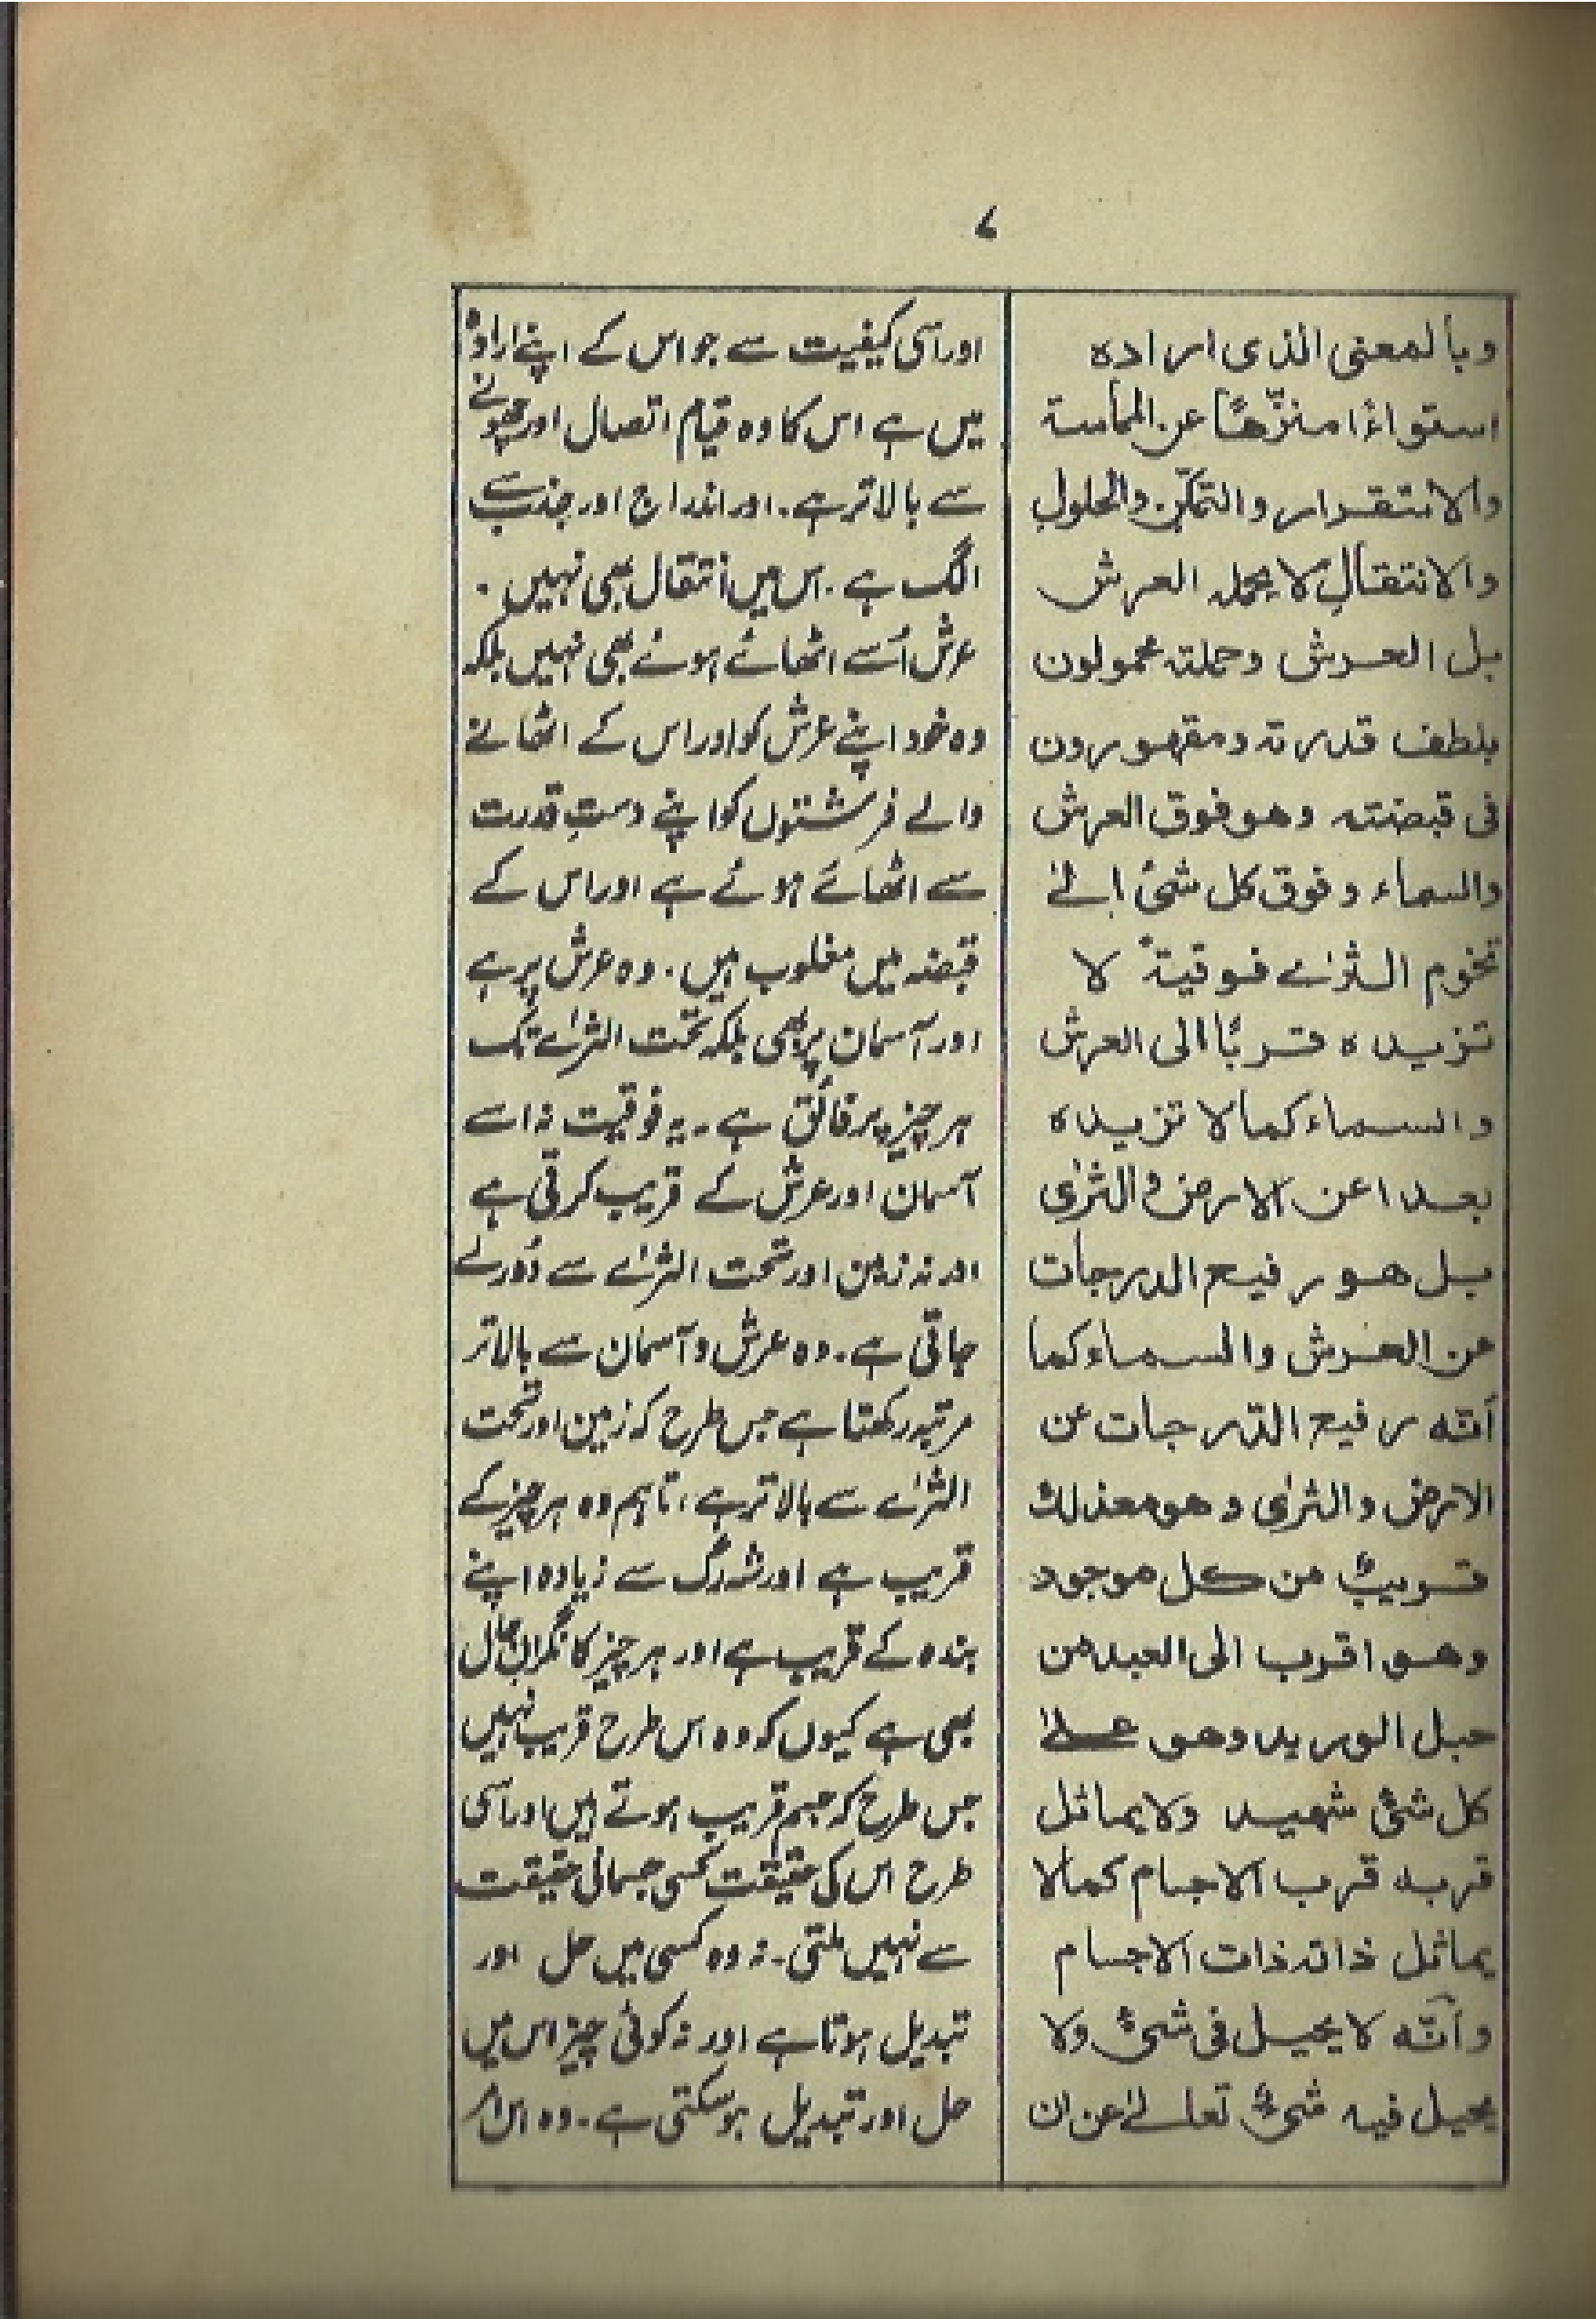 ۷
وبالمعنى الذى اراده
استواءً منزّهًا عن المماسة
والاستقرار والتمكّن والحلول
والانتقال لا يحمله العرش
بل العرش وحملته محمولون
بلطف قدرته ومقهورون
فى قبضته وهو فوق العرش
والسماء وفوق كل شئ الىٰ
تخوم الثرٰے فوقيةً لا
تزيده قربًا الى العرش
والسماء كما لا تزيده
بعدا عن الارض والثرٰى
بل هو رفيع الدرجات
عن العرش والسماء كما
أنّه رفيع الدّرجات عن
الارض والثرٰى وهو مع ذلك
قريبٌ من كل موجود
وهو اقرب الى العبد من
حبل الوريد وهو علىٰ
كل شئ شهيد ولا يماثل
قربه قرب الاجسام كما لا
يماثل ذاته ذات الاجسام
وأنّه لا يحيل فى شئ ولا
يحيل فيه شئٌ تعالىٰ عن ان
اور اسی کیفیت سے جو اس کے اپنے ارادہ
میں ہے اس کا وہ قیام اتصال اور چھونے
سے بالاتر ہے۔ اور اندراج اور جذب سے
الگ ہے۔ اس میں انتقال بھی نہیں۔
عرش اُسے اٹھائے ہوئے بھی نہیں بلکہ
وہ خود اپنے عرش کو اور اس کے اٹھانے
والے فرشتوں کو اپنے دستِ قدرت
سے اٹھائے ہوئے ہے اور اس کے
قبضہ میں مغلوب ہیں۔ وہ عرش پر ہے
اور آسمان پر بھی بلکہ تحت الثرٰے تک
ہر چیز پر فائق ہے۔ یہ فوقیت نہ اسے
آسمان اور عرش کے قریب کرتی ہے
اور نہ زمین اور تحت الثرٰے سے دُور لے
جاتی ہے۔ وہ عرش و آسمان سے بالاتر
مرتبہ رکھتا ہے جس طرح کہ زمین اور تحت
الثرٰے سے بالاتر ہے، تاہم وہ ہر چیز کے
قریب ہے اور شہ رگ سے زیادہ اپنے
بندہ کے قریب ہے اور ہر چیز کا نگرانِ حال
بھی ہے کیوں کہ وہ اس طرح قریب نہیں
جس طرح کہ جسم قریب ہوتے ہیں اور اسی
طرح اس کی حقیقت کسی جسمانی حقیقت
سے نہیں ملتی۔ نہ وہ کسی میں حل اور
تبدیل ہوتا ہے اور نہ کوئی چیز اس میں
حل اور تبدیل ہو سکتی ہے۔ وہ اس امر